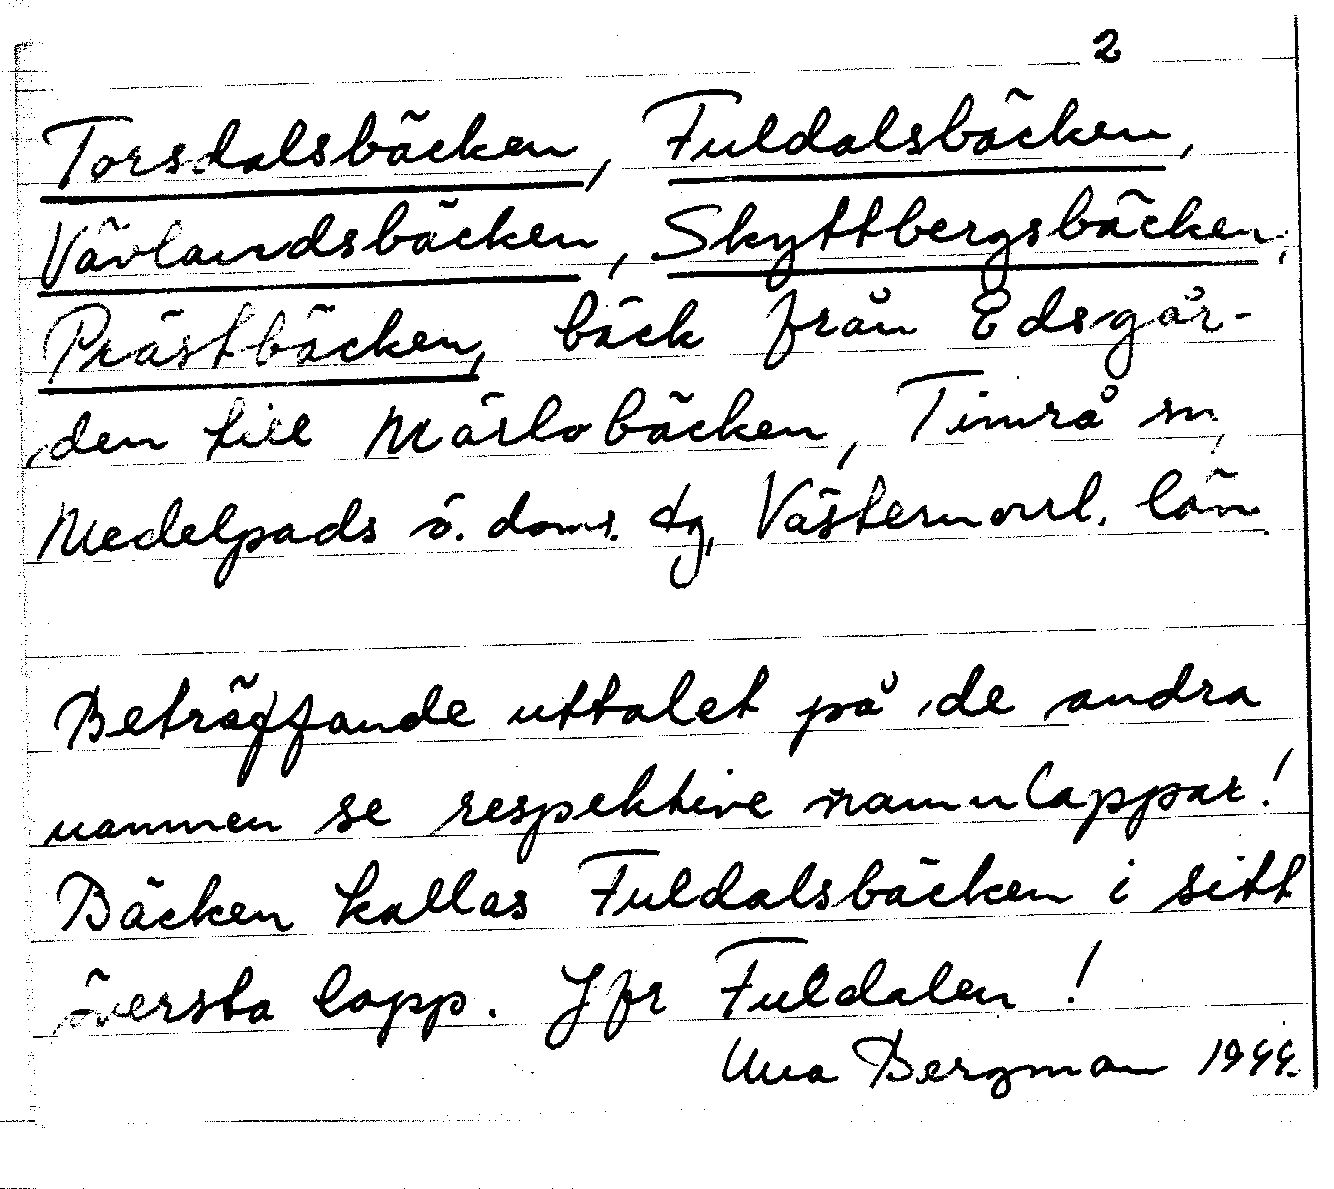 2
Torsdalsbäcken, Fuldalsbäcken,
Vävlandsbäcken, Skyttbergsbäcken,
Prästbäcken, bäck från Edsgår-
den till Märlobäcken, Timrå sn,
Medelpads ö. doms. tg, Västernorrl. län.
Beträffande uttalet på de andra
namnen se respektive namnlappar!
Bäcken kallas Fuldalsbäcken i sitt
översta lopp. Jfr Fuldalen!
Una Bergman 1944.